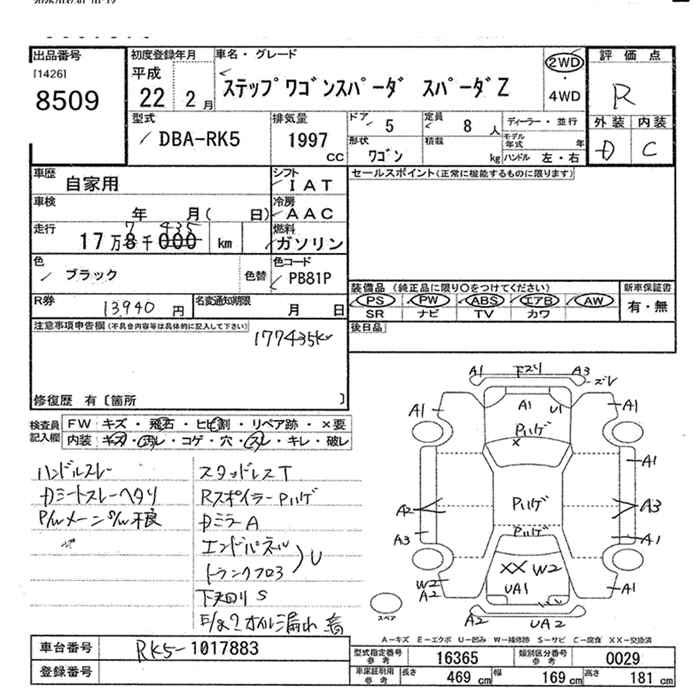 出品番号
[1426]
8509
初度登録年月
平成
22 2月
車名・グレード
ステップワゴンスパーダ スパーダZ
2WD
・
4WD
評価点
R
外装 内装
D C
型式
DBA-RK5
排気量
1997
CC
ドア 5
定員 8 人
ディーラー・並行
形状
ワゴン
積載 kg
モデル年式 年
ハンドル 左・右
車歴
自家用
シフト
IAT
セールスポイント(正常に機能するものに限ります)
車検
年 月( 日)
冷房
AAC
走行
7 435
17万8千000 km
燃料
ガソリン
色
ブラック
色替
色コード
PB81P
装備品 (純正品に限り○をつけてください)
PS PW ABS エアB AW
SR ナビ TV カワ
新車保証書
有・無
R券
13,940 円
名変通知期限
月 日
後日品
注意事項申告欄(不具合内容等は具体的に記入して下さい)
177435km
修復歴 有〔箇所 〕
検査員記入欄
FW キズ・飛石・ヒビ割・リペア跡・×要
内装 キズ・汚レ・コゲ・穴・スレ・キレ・破レ
ハンドルスレ
Dシートスレ ヘタリ
P/wメーンS/w不良
スタッドレスT
RスポイラーPハゲ
DミラーA
エンドパネル
トランクフロア
)U
下廻りS
E/オイル漏れ
A1 下スリ A3
ズレ
A1 A1 U1 A1
Pハゲ
×
A1
A2 Pハゲ A3
A3 Pハゲ A1
W2 ××W2
A2 UA1 A1
A2 UA2
スペア
A-キズ E-エクボ U-凹み W-補修跡 S-サビ C-腐食 XX-交換済
車台番号
RK5-1017883
登録番号
型式指定番号
参考
16365
類別区分番号
参考
0029
車庫証明用
参考
長さ 469 cm 幅 169 cm 高さ 181 cm